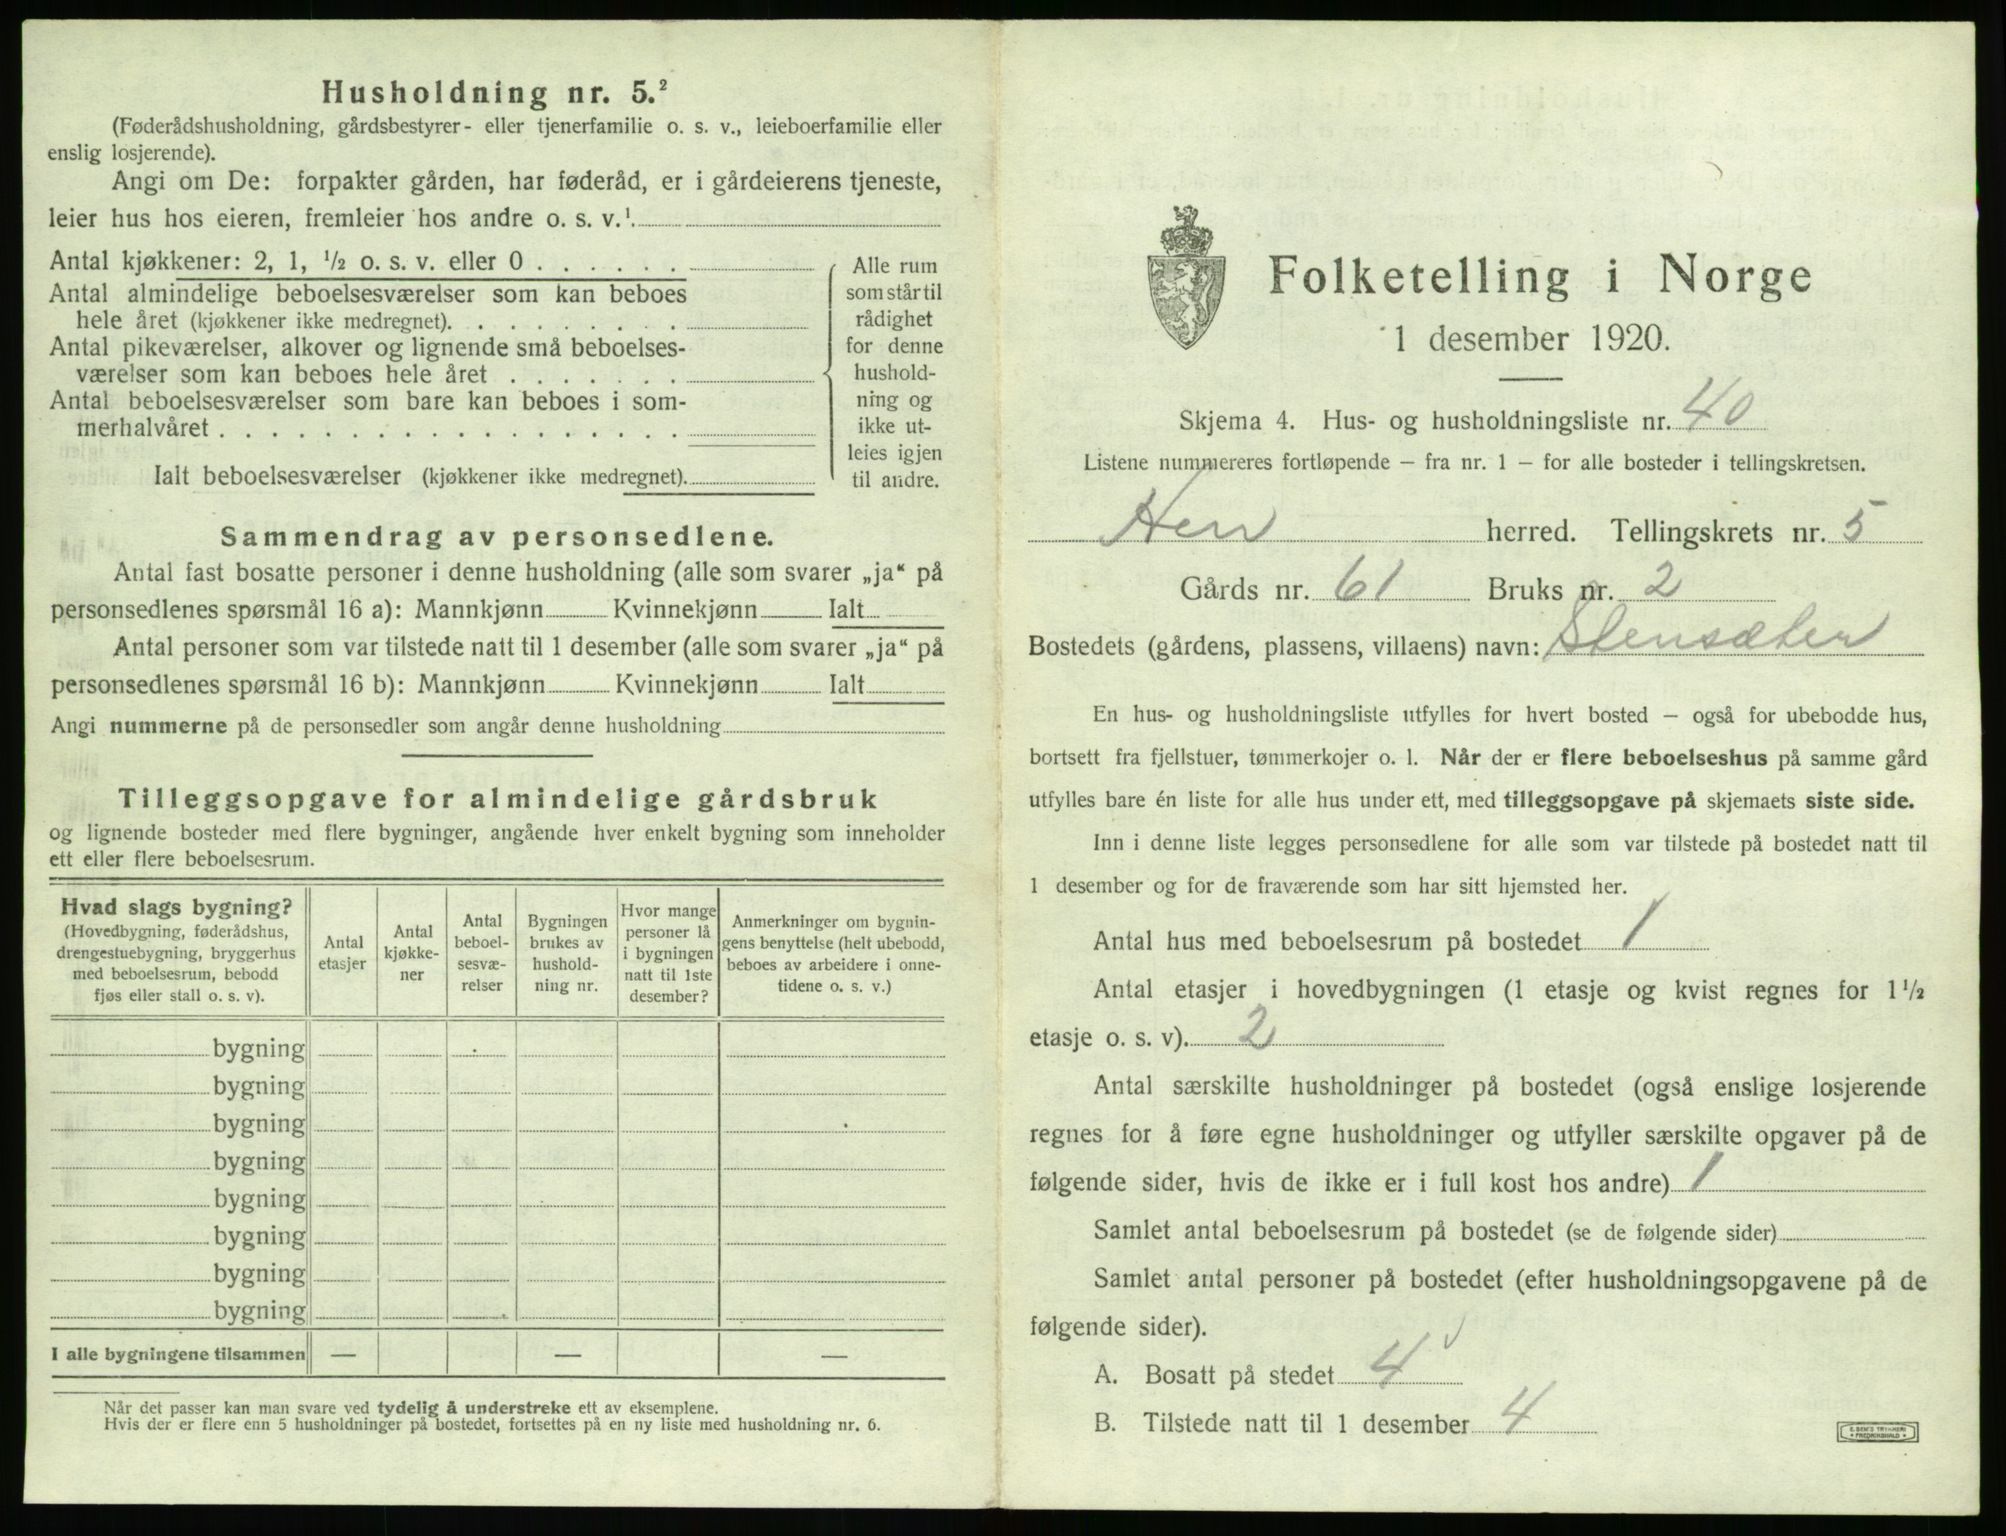 Husholdning nr. 5.²
(Føderådshusholdning, gårdsbestyrer- eller tjenerfamilie o. s. v., leieboerfamilie eller
enslig losjerende).
Angi om De: forpakter gården, har føderåd, er i gårdeierens tjeneste,
leier hus hos eieren, fremleier hos andre o. s. v.¹
Antal kjøkkener: 2, 1, ½ o. s. v. eller 0 . . . . . .
Antal almindelige beboelsesværelser som kan beboes
hele året (kjøkkener ikke medregnet). . . . . . . . .
Antal pikeværelser, alkover og lignende små beboelses-
værelser som kan beboes hele året . . . . . . .
Antal beboelsesværelser som bare kan beboes i som-
merhalvåret . . . . . . . . . . . . . . . . . .
Ialt beboelsesværelser (kjøkkener ikke medregnet).
Alle rum
som står til
rådighet
for denne
hushold-
ning og
ikke ut-
leies igjen
til andre.
Sammendrag av personsedlene.
Antal fast bosatte personer i denne husholdning (alle som svarer „ja“ på
personsedlenes spørsmål 16 a): Mannkjønn Kvinnekjønn Ialt
Antal personer som var tilstede natt til 1 desember (alle som svarer „ja“ på
personsedlenes spørsmål 16 b): Mannkjønn Kvinnekjønn Ialt
Angi nummerne på de personsedler som angår denne husholdning
Tilleggsopgave for almindelige gårdsbruk
og lignende bosteder med flere bygninger, angående hver enkelt bygning som inneholder
ett eller flere beboelsesrum.
Hvad slags bygning?
(Hovedbygning, føderådshus,
drengestuebygning, bryggerhus
med beboelsesrum, bebodd
fjøs eller stall o. s. v).
Antal
etasjer
Antal
kjøkke-
ner
Antal
beboel-
sesvæ-
relser
Bygningen
brukes av
hushold-
ning nr.
Hvor mange
personer lå
i bygningen
natt til 1ste
desember?
Anmerkninger om bygnin-
gens benyttelse (helt ubebodd,
beboes av arbeidere i onne-
tidene o. s. v.)
bygning
bygning
bygning
bygning
bygning
bygning
bygning
bygning
I alle bygningene tilsammen — — —
Når det passer kan man svare ved tydelig å understreke ett av eksemplene.
Hvis der er flere enn 5 husholdninger på bostedet, fortsettes på en ny liste med husholdning nr. 6.
Folketelling i Norge
1 desember 1920.
Skjema 4. Hus- og husholdningsliste nr. 40
Listene nummereres fortløpende — fra nr. 1 — for alle bosteder i tellingskretsen.
Herr herred. Tellingskrets nr. 5
Gårds nr. 61 Bruks nr. 2
Bostedets (gårdens, plassens, villaens) navn: Stensæter
En hus- og husholdningsliste utfylles for hvert bosted — også for ubebodde hus,
bortsett fra fjellstuer, tømmerkojer o. l. Når der er flere beboelseshus på samme gård
utfylles bare én liste for alle hus under ett, med tilleggsopgave på skjemaets siste side.
Inn i denne liste legges personsedlene for alle som var tilstede på bostedet natt til
1 desember og for de fraværende som har sitt hjemsted her.
Antal hus med beboelsesrum på bostedet 1
Antal etasjer i hovedbygningen (1 etasje og kvist regnes for 1½
etasje o. s. v). 2
Antal særskilte husholdninger på bostedet (også enslige losjerende
regnes for å føre egne husholdninger og utfyller særskilte opgaver på de
følgende sider, hvis de ikke er i full kost hos andre) 1
Samlet antal beboelsesrum på bostedet (se de følgende sider)
Samlet antal personer på bostedet (efter husholdningsopgavene på de
følgende sider).
A. Bosatt på stedet 4
B. Tilstede natt til 1 desember 4
E. SEM'S TRYKKERI
FREDRIKSHALD